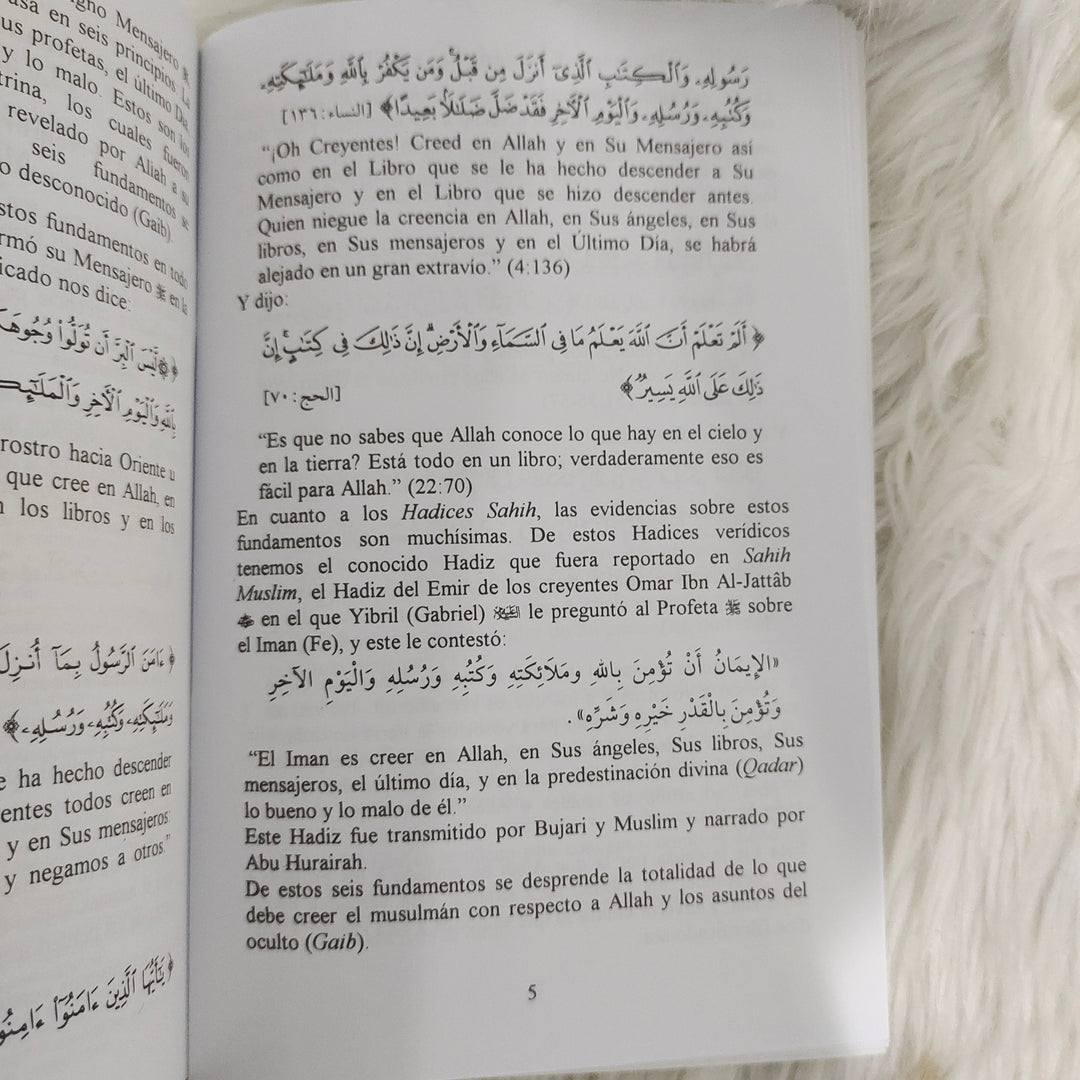 igno Mensajero ﷺ
asa en seis principios. La
us profetas, el último Día
y lo malo. Estos son los
trina, los cuales fueron
revelado por Allah a su
seis fundamentos se
o desconocido (Gaib).
stos fundamentos en todo
rmó su Mensajero ﷺ en la
icado nos dice:
﴿ لَّيْسَ الْبِرَّ أَن تُوَلُّوا وُجُوهَكُ
بِاللَّهِ وَالْيَوْمِ الْآخِرِ وَالْمَلَائِكَ
rostro hacia Oriente u
que cree en Allah, en
n los libros y en los
﴿ ءَامَنَ الرَّسُولُ بِمَا أُنزِلَ
وَمَلَائِكَتِهِ وَكُتُبِهِ وَرُسُلِهِ
e ha hecho descender
entes todos creen en
y en Sus mensajeros:
y negamos a otros.”
﴿ يَا أَيُّهَا الَّذِينَ ءَامَنُوا ءَامِنُوا
رَسُولِهِ وَالْكِتَابِ الَّذِي أَنزَلَ مِن قَبْلُ وَمَن يَكْفُرْ بِاللَّهِ وَمَلَائِكَتِهِ
وَكُتُبِهِ وَرُسُلِهِ وَالْيَوْمِ الْآخِرِ فَقَدْ ضَلَّ ضَلَالًا بَعِيدًا ﴾ [النساء: ١٣٦]
“¡Oh Creyentes! Creed en Allah y en Su Mensajero así
como en el Libro que se le ha hecho descender a Su
Mensajero y en el Libro que se hizo descender antes.
Quien niegue la creencia en Allah, en Sus ángeles, en Sus
libros, en Sus mensajeros y en el Último Día, se habrá
alejado en un gran extravío.” (4:136)
Y dijo:
﴿ أَلَمْ تَعْلَمْ أَنَّ اللَّهَ يَعْلَمُ مَا فِي السَّمَاءِ وَالْأَرْضِ إِنَّ ذَلِكَ فِي كِتَابٍ إِنَّ
ذَلِكَ عَلَى اللَّهِ يَسِيرٌ ﴾ [الحج: ٧٠]
“Es que no sabes que Allah conoce lo que hay en el cielo y
en la tierra? Está todo en un libro; verdaderamente eso es
fácil para Allah.” (22:70)
En cuanto a los Hadices Sahih, las evidencias sobre estos
fundamentos son muchísimas. De estos Hadices verídicos
tenemos el conocido Hadiz que fuera reportado en Sahih
Muslim, el Hadiz del Emir de los creyentes Omar Ibn Al-Jattâb
en el que Yibril (Gabriel) le preguntó al Profeta ﷺ sobre
el Iman (Fe), y este le contestó:
«الإِيمَانُ أَنْ تُؤْمِنَ بِاللهِ ومَلَائِكَتِهِ وَكُتُبِهِ وَرُسُلِهِ وَالْيَوْمِ الآخِرِ
وَتُؤْمِنَ بِالْقَدْرِ خَيْرِهِ وَشَرِّهِ» .
“El Iman es creer en Allah, en Sus ángeles, Sus libros, Sus
mensajeros, el último día, y en la predestinación divina (Qadar)
lo bueno y lo malo de él.”
Este Hadiz fue transmitido por Bujari y Muslim y narrado por
Abu Hurairah.
De estos seis fundamentos se desprende la totalidad de lo que
debe creer el musulmán con respecto a Allah y los asuntos del
oculto (Gaib).
5